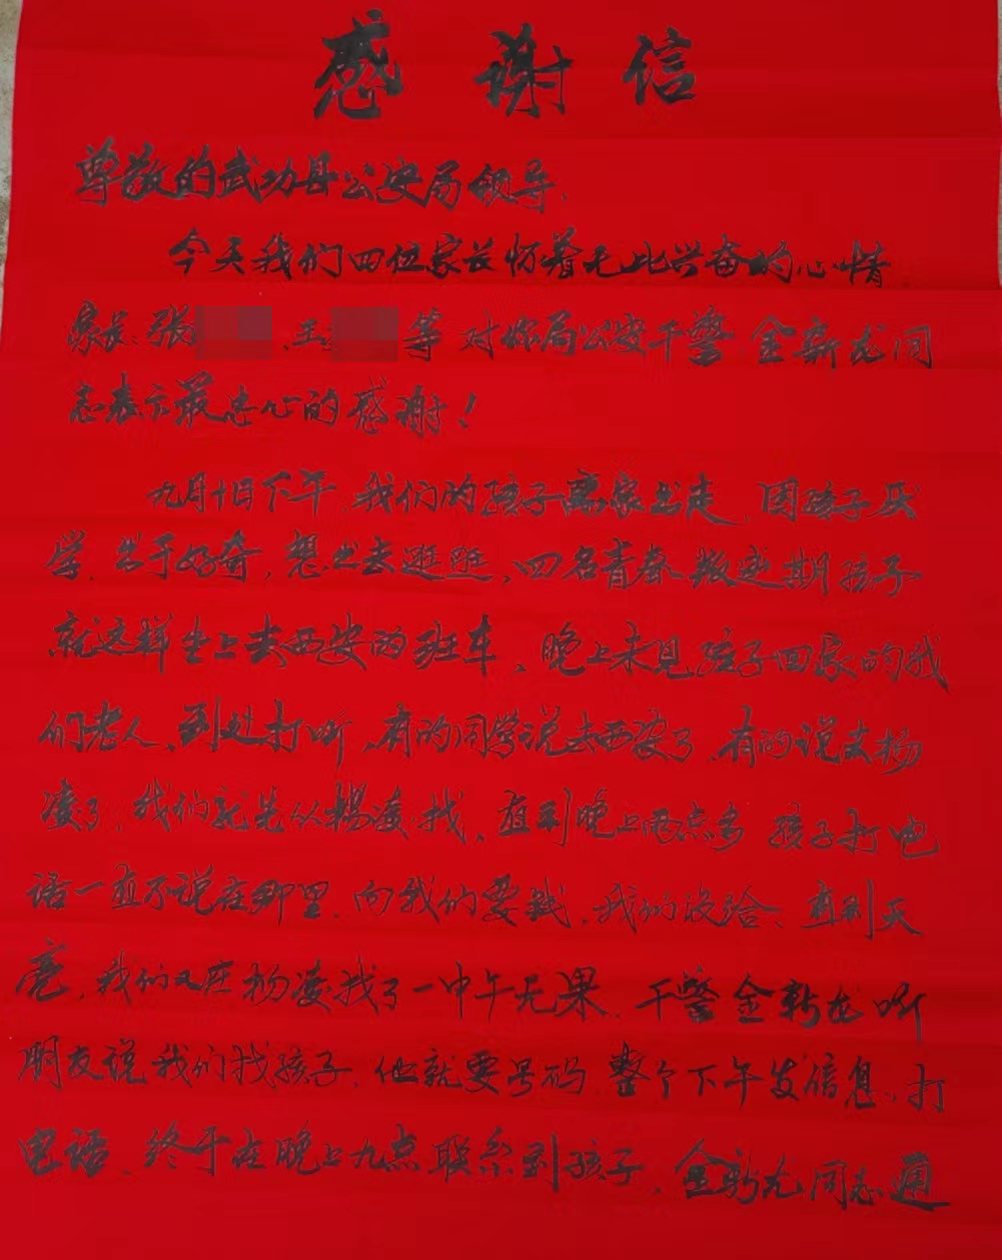 感谢信
尊敬的武功县公安局领导.
今天我们四位家长怀着无比兴奋的心情
家长张、王等对你局公安干警金新龙同
志表示最忠心的感谢！
九月十日下午,我们的孩子离家出走,因孩子厌
学,出于好奇,想出去逛逛、四名青春叛逆期孩子
就这样坐上去西安的班车、晚上未见孩子回家的我
们老人、到处打听、有的同学说去西安了、有的说去杨
凌了,我们就先从杨凌找、直到晚上两点多孩子打电
话一直不说在那里,向我们要钱,我们没给、直到天
亮,我们又在杨凌找了一中午无果,干警金新龙听
朋友说我们找孩子,他就要号码整个下午发信息、打
电话、终于在晚上九点联系到孩子、金新龙同志通